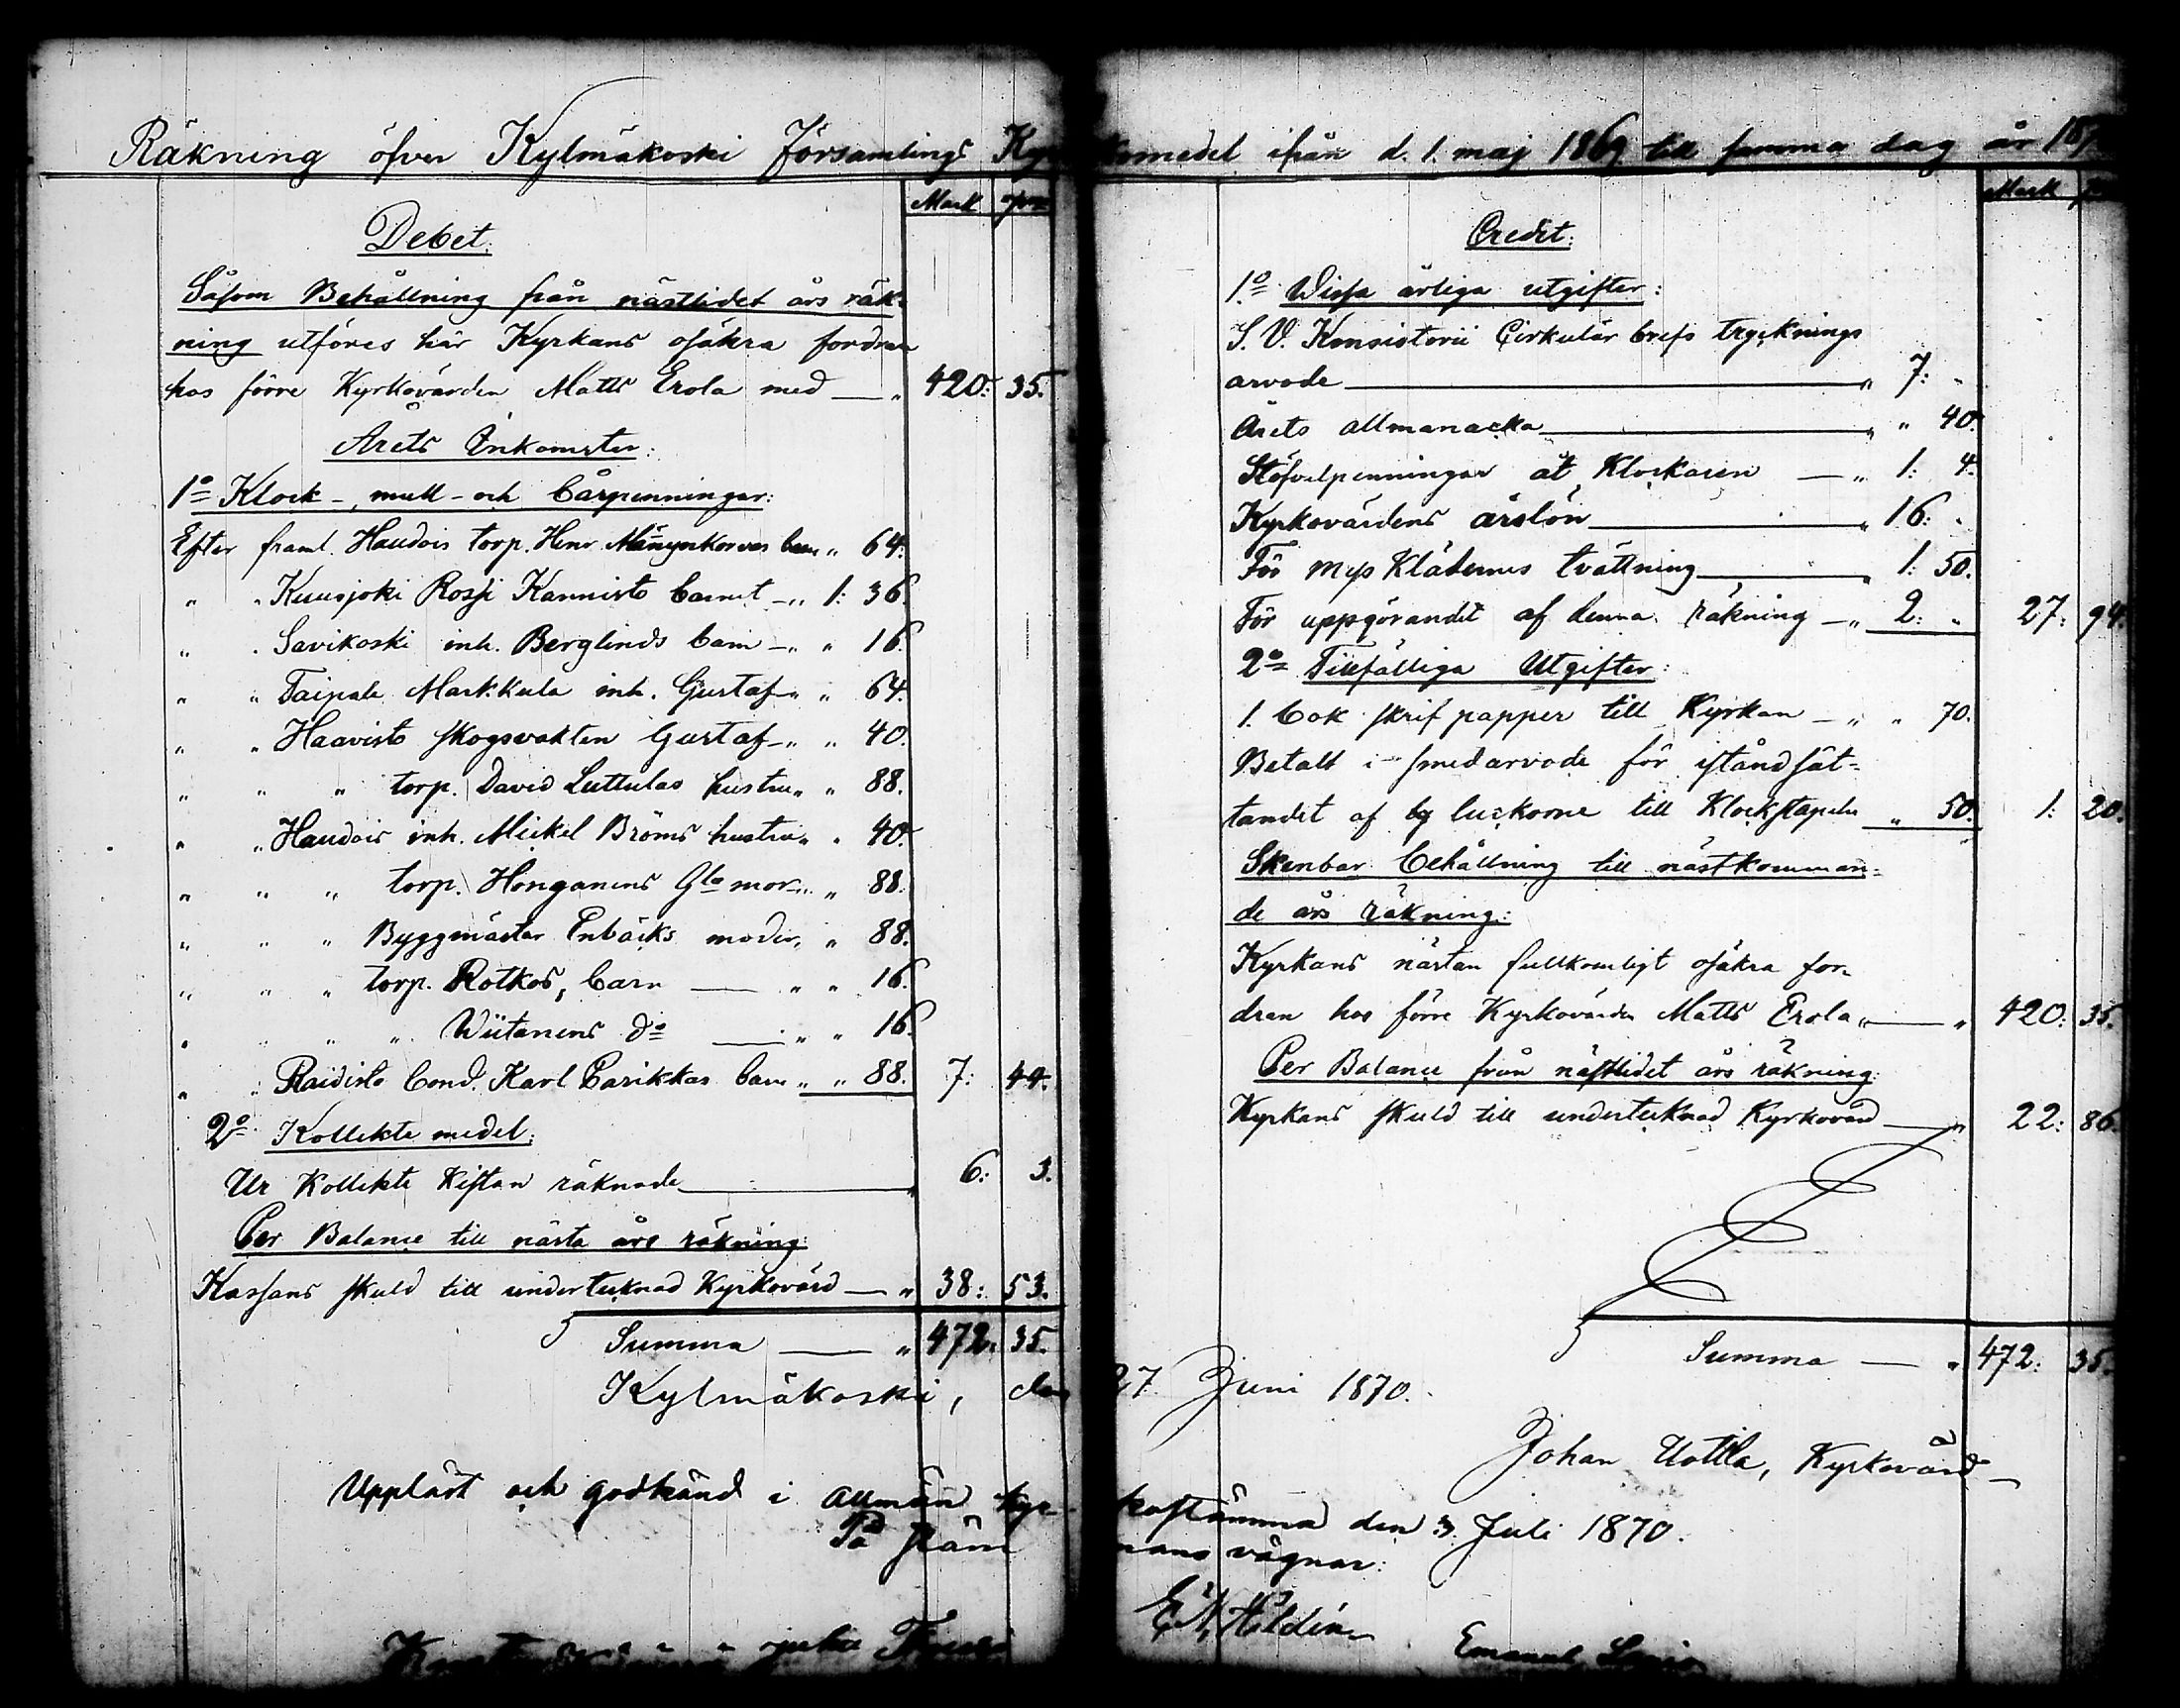 Räkning öfver Kylmäkoski Församlings Kyrkomedel ifrån d. 1. maj 1869 till samma dag år 187
Mark
Debet:
Såsom Behållning från nästlidet års räk-
ning utföres här Kyrkans osäkra fordran
hos förre Kyrkovärden Matts Erola med — „ 420: 35.
Årets Inkomster:
1º Klock-, mull- och bårpenningar:
Efter framl. Haudois torp. Henr. barn „ 64.
„ „ Kuusjoki Rossi Kannisto barnet — „ 1: 36.
„ „ Savikoski inh. Berglinds barn — „ „ 16.
„ „ Taipale Markkula inh. Gustaf — „ „ 64.
„ „ Haavisto skogsvakten Gustaf — „ „ 40.
„ „ „ torp. David Luttulas hustru „ „ 88.
„ „ Haudois inh. Mickel Bröms hustru „ „ 40.
„ „ „ torp. Honganens Gla mor — „ „ 88.
„ „ „ Byggmästar Enbäcks moder „ „ 88.
„ „ „ torp. Rotkos, barn — „ „ 16.
„ „ „ „ Wiitanens dº — „ „ 16.
„ „ Raidisto bond. Karl Parikkas barn „ „ 88. 7: 44.
2º Kollekte medel:
Ur Kollekte Kistan räknade — „ 6: 3.
Per Balance till nästa års räkning:
Kassans skuld till undertecknad Kyrkovärd — „ 38: 53.
Summa — „ 472: 35.
Mark
Credit:
1º Wissa årliga utgifter:
S. V. Konsistorii Cirkulär brefs trycknings
arvode — „ 7: „
Årets allmanacka — „ „ 40.
Stöfvelpenningar åt Klockaren — „ 1: 4.
Kyrkovärdens årslön — „ 16: „
För mess Klädernes tvättning — „ 1: 50.
För uppgörandet af denna räkning — „ 2: „ 27: 94.
2º Tillfälliga Utgifter:
1. bok skrif papper till Kyrkan — „ „ 70.
Betalt i smedarvode för iståndsät-
tandet af luckorne till Klockstapeln „ 50. 1: 20.
Skenbar behållning till nästkomman-
de års räkning:
Kyrkans nästan fullkomligt osäkra for-
dran hos förre Kyrkovärden Matts Erola „ — „ 420: 35.
Per Balance från nästlidet års räkning:
Kyrkans skuld till undertecknad Kyrkovärd — „ 22: 86.
Summa — „ 472: 35.
Kylmäkoski, den 27 Juni 1870.
Johan Uottila, Kyrkovärd
Uppläst och godkänd i allmän kyrkostämma den 3 Juli 1870.
På stämmans vägnar:
Hildén
Emanuel